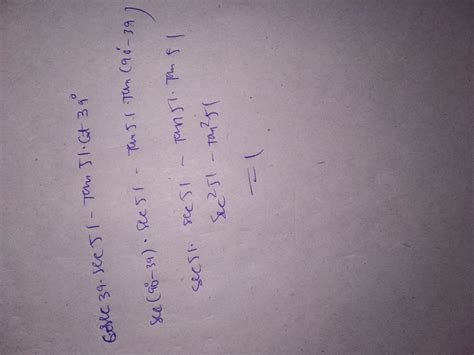 Cosec 39·sec 51 - tan 51·cot 39°
sec (90°-39)·sec 51 - tan 51·tan (90°-39)
sec 51·sec 51 - tan 51·tan 51
sec²51 - tan²51
=1